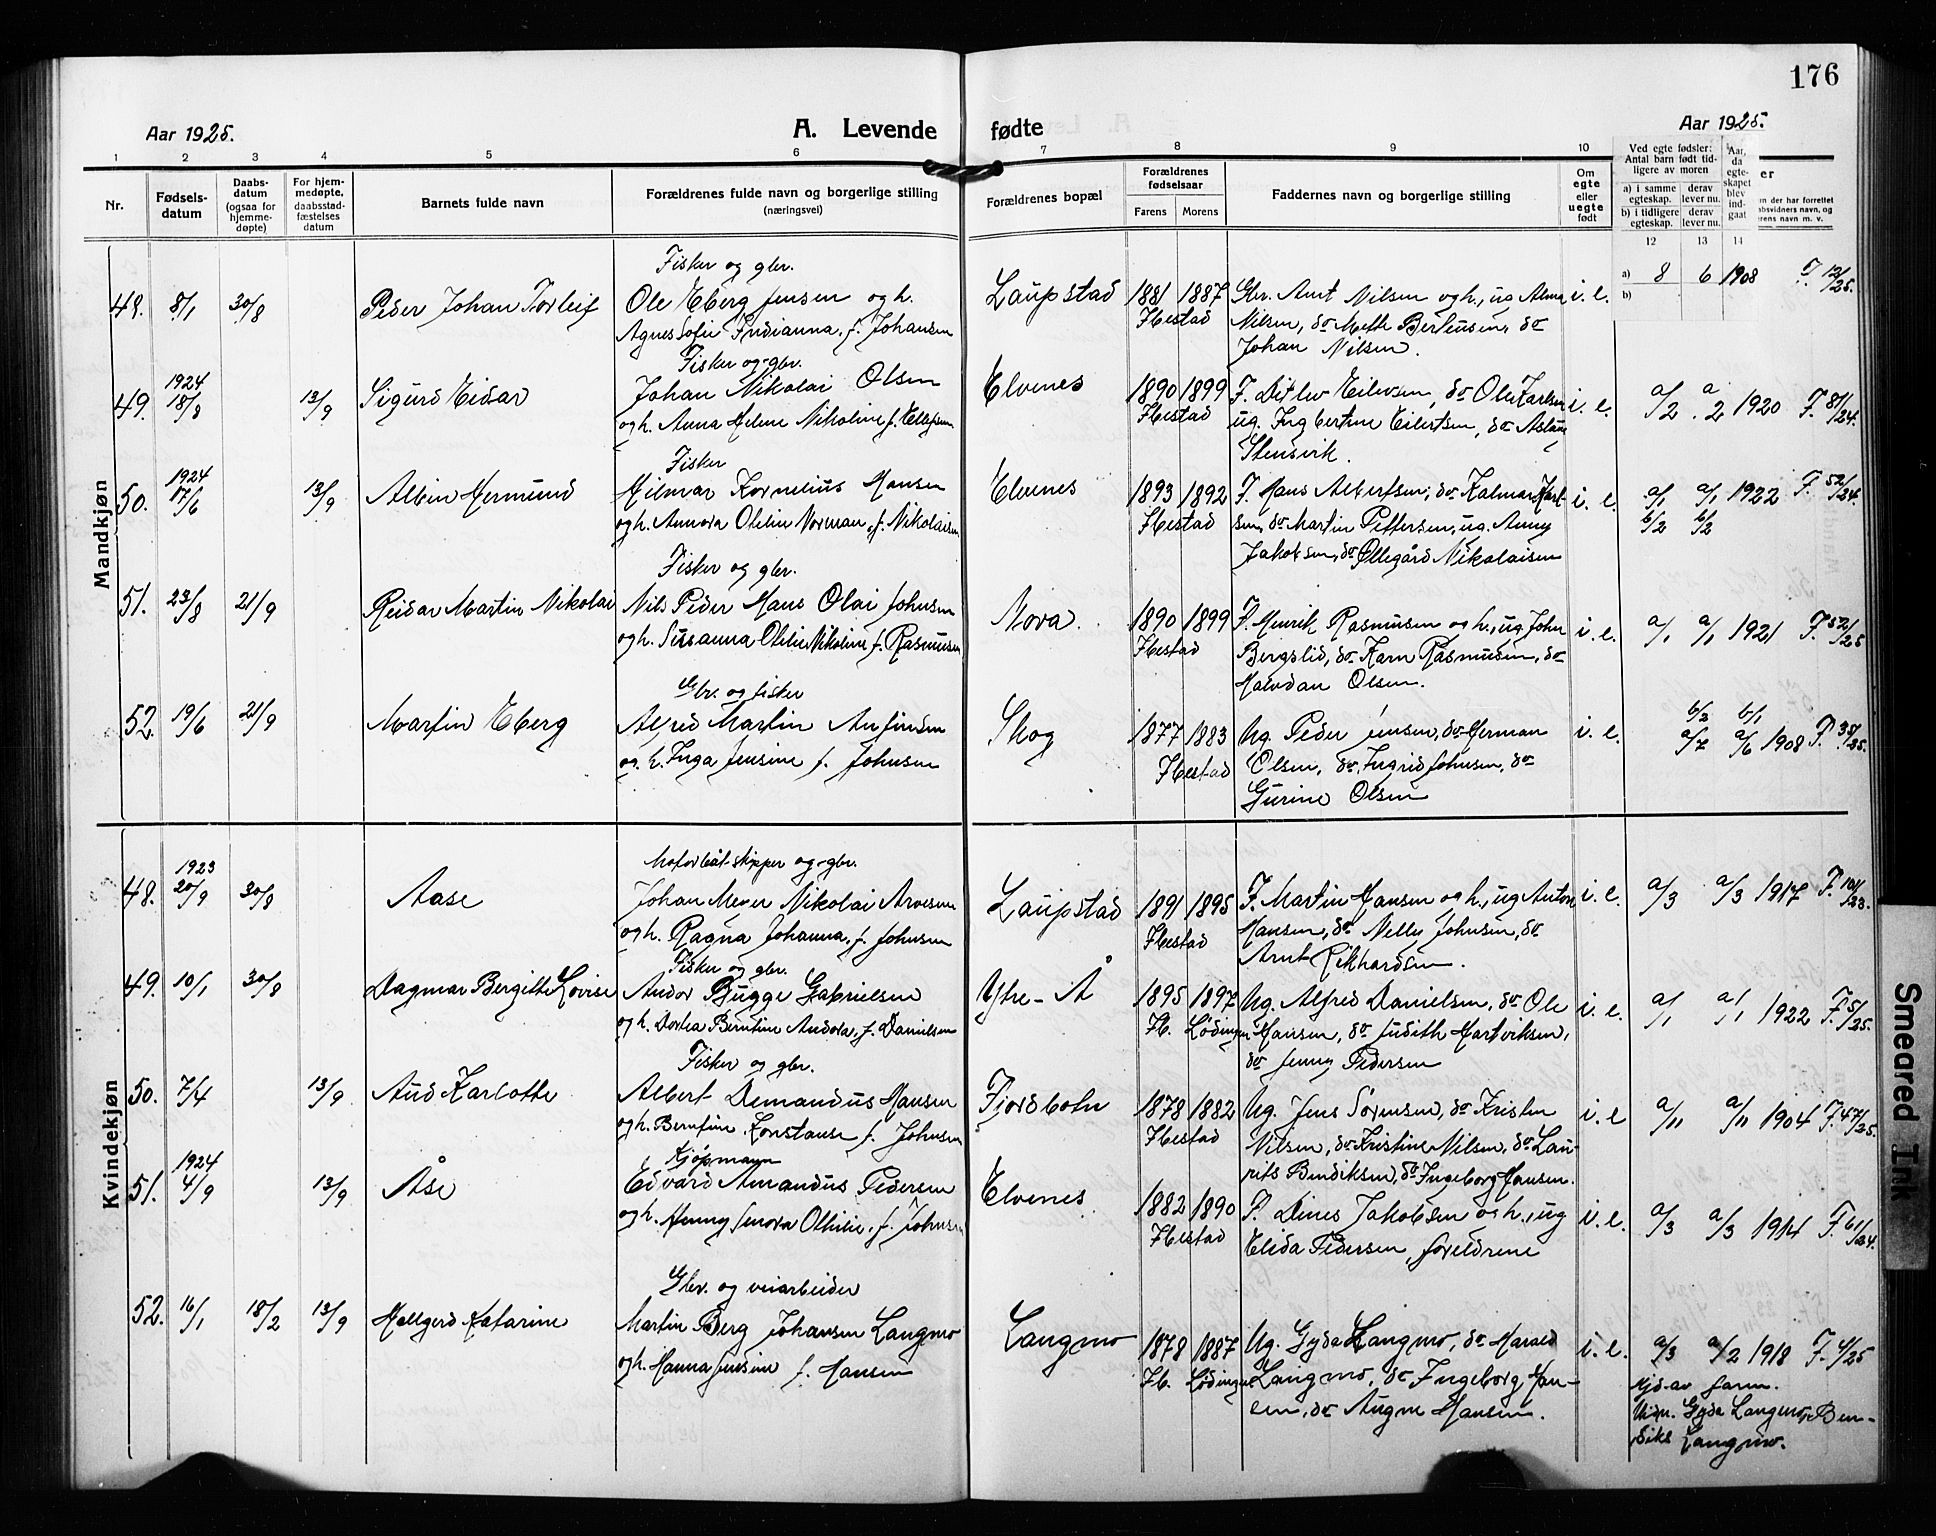 176
Aar 1925.
A. Levende fødte
Aar 1925.
1 2 3 4 5 6 7 8 9 10
Nr.
Fødsels-
datum
Daabs-
datum
(ogsaa for
hjemme-
døpte)
For hjem-
medøpte.
daabsstad-
fæstelses
datum
Barnets fulde navn
Forældrenes fulde navn og borgerlige stilling
(næringsvei)
Forældrenes bopæl
Forældrenes
fødselsaar
Farens Morens
Faddernes navn og borgerlige stilling
Om
egte
eller
uegte
født
Ved egte fødsler:
Antal barn født tid-
ligere av moren
a) i samme
egteskap.
derav
lever nu.
b) i tidligere
egteskap.
derav
lever nu.
Aar,
da
egte-
skapet
blev
ind-
gaat
12 13 14
Mandkjøn
48. 8/1 30/8
Peder Johan Torleif
Fisker og gbr.
Ole Eberg Jensen og h.
Agnes Sofie Indianna, f. Johansen
Laupstad
1881 1887
Ibestad
Gbr. Arnt Nilsen og h., ug Alma
Nilsen, do Meth Berteusen, do
Johan Nilsen.
i. e.
a) 8 6 1908 F. 12/25.
b)
49. 1924 18/8 13/9
Sigurd Eidar
Fisker og gbr.
Johan Nikolai Olsen
og h. Anna Helene Nikoline f. Ellefsen
Elvenes
1890 1899
Ibestad
F. Ditlev Eilevsen, do Ole Karlsen
ug. Ingbertine Eilertsen, do Aslaug
Stensvik.
i. e.
a/2 a/2 1920 F. 81/24.
50. 1924 17/6 13/9
Albin Hermund
Fisker
Hilmar Kornelius Hansen
og h. Annora Otelie Norman, f. Nikolaisen
Elvenes
1893 1892
Ibestad
F. Hans Albertsen, do Kalmar Karl-
sen, do Martin Pettersen, ug. Anny
Jakobsen, do Ollegård Nikolaisen
i. e.
a/1 a/1 1922 F. 52/24.
b/2 b/2
51. 23/8 21/9
Reidar Martin Nikolai
Fisker og gbr.
Nils Peder Hans Olai Johnsen
og h. Susanna Otelie Nikoline f. Rasmusen
Nova.
1890 1899
Ibestad
F. Henrik Rasmusen og h., ug. John
Bergslid, do Karn Rasmusen, do
Halvdan Olsen.
i. e.
a/1 a/1 1921 F. 52/25
52. 19/6 21/9
Martin Eberg
Gbr. og fisker
Alfred Martin Anfinsen
og. h. Inga Jensine f. Johnsen
Skog
1877 1883
Ibestad
Ug. Peder Jensen, do Herman
Olsen, do. Ingrid Johnsen, do
Gurine Olsen
i. e.
b/2 b/1
a/7 a/6 1908 F. 35/25.
Kvindekjøn
48. 1923 20/9 30/8
Aase
Motorbåt-skipper og gbr.
Johan Meyer Nikolai Arvesen
og h. Ragna Johanna, f. Johnsen
Laupstad
1891 1895
Ibestad
F. Martin Hansen og h., ug Anton
Hansen, do Nelly Johnsen, do
Arnt Rikhardsen.
i. e.
a/3 a/3 1917 F. 101/23.
49. 10/1 30/8
Dagmar Bergitte Lovise
Fisker og gbr.
Andor Bygge Gabrielsen
og h. Dortea Berntine Andora, f. Danielsen
Ytre-Å
1895 1897
Ib. Lødingen
Ug. Alfred Danielsen, do Ole
Hansen, do Judith Hartviksen,
do Jenny Pedersen
i. e.
a/1 a/1 1922 F. 5/25.
50. 7/4 13/9
Aud Karlotte
Fisker og gbr.
Albert Demandus Hansen
og h. Berntine Konstanse f. Johnsen
Fjordbotn
1878 1882
Ibestad
Ug. Jens Sørensen, do Kristen
Nilsen, do Kristine Nilsen, do Lau-
rits Bendiksen, do Ingeborg Hansen.
i. e
a/11 a/11 1904 F. 47/25.
51. 1924 4/9 13/9
Åse
Kjøpmann
Edvard Amandus Pedersen
og h. Henny Jenora Othilie, f. Johnsen
Elvenes
1882 1890
Ibestad
S. Dines Jakobsen og h., ug
Elida Pedersen, foreldrene
i. e.
a/3 a/3 1914 F. 61/24.
52. 16/1 18/2 13/9
Hallgerd Katarine
Gbr. og veiarbeider
Martin Berg Johansen Langmo
og h. Hanna Jensine f. Hansen
Langmo
1878 1887
Ib. Lødingen
Ug. Gyda Langmo, do Harald
Langmo, do Ingeborg Han-
sen, do Augne Hansen.
i. e.
a/3 a/2 1918 F. 4/25
Hjd. av farm.
Vidn. Gyda Langmo, Ben-
diks Langmo.
Smeared Ink